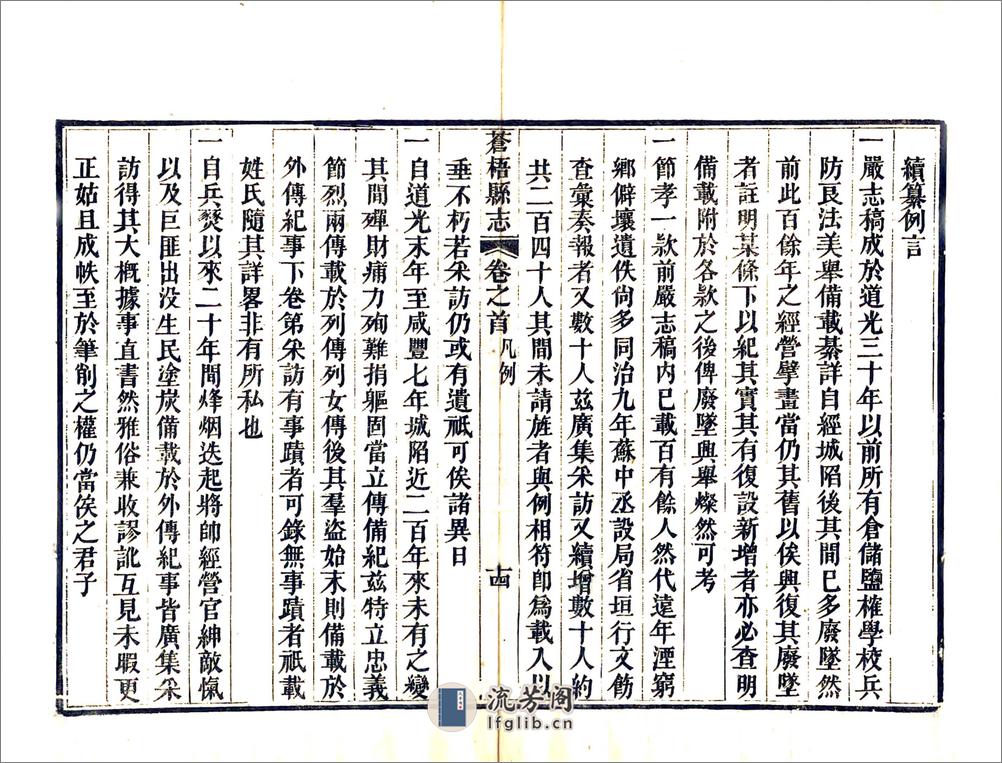 續纂例言
一嚴志稿成於道光三十年以前所有倉儲鹽榷學校兵
防良法美舉備載綦詳自經城陷後其間已多廢墜然
前此百餘年之經營擘畫當仍其舊以俟興復其廢墜
者註明某條下以紀其實其有復設新增者亦必查明
備載附於各款之後俾廢墜興舉燦然可考
一節孝一款前嚴志稿內已載百有餘人然代遠年湮窮
鄉僻壤遺佚尙多同治九年蘇中丞設局省垣行文飭
查彙奏報者又數十人兹廣集采訪又續增數十人約
共二百四十人其間未請旌者與例相符卽爲載入以
蒼梧縣志 卷之首 凡例 十四
垂不朽若采訪仍或有遺祇可俟諸異日
一自道光末年至咸豐七年城陷近二百年來未有之變
其間殫財痡力殉難捐軀固當立傳備紀兹特立忠義
節烈兩傳載於列傳列女傳後其羣盜始末則備載於
外傳紀事下卷第采訪有事蹟者可錄無事蹟者祇載
姓氏隨其詳畧非有所私也
一自兵燹以來二十年間烽烟迭起將帥經營官紳敵愾
以及巨匪出没生民塗炭備載於外傳紀事皆廣集采
訪得其大概據事直書然雅俗兼收謬訛互見未暇更
正姑且成帙至於筆削之權仍當俟之君子
流芳阁
lfglib.cn